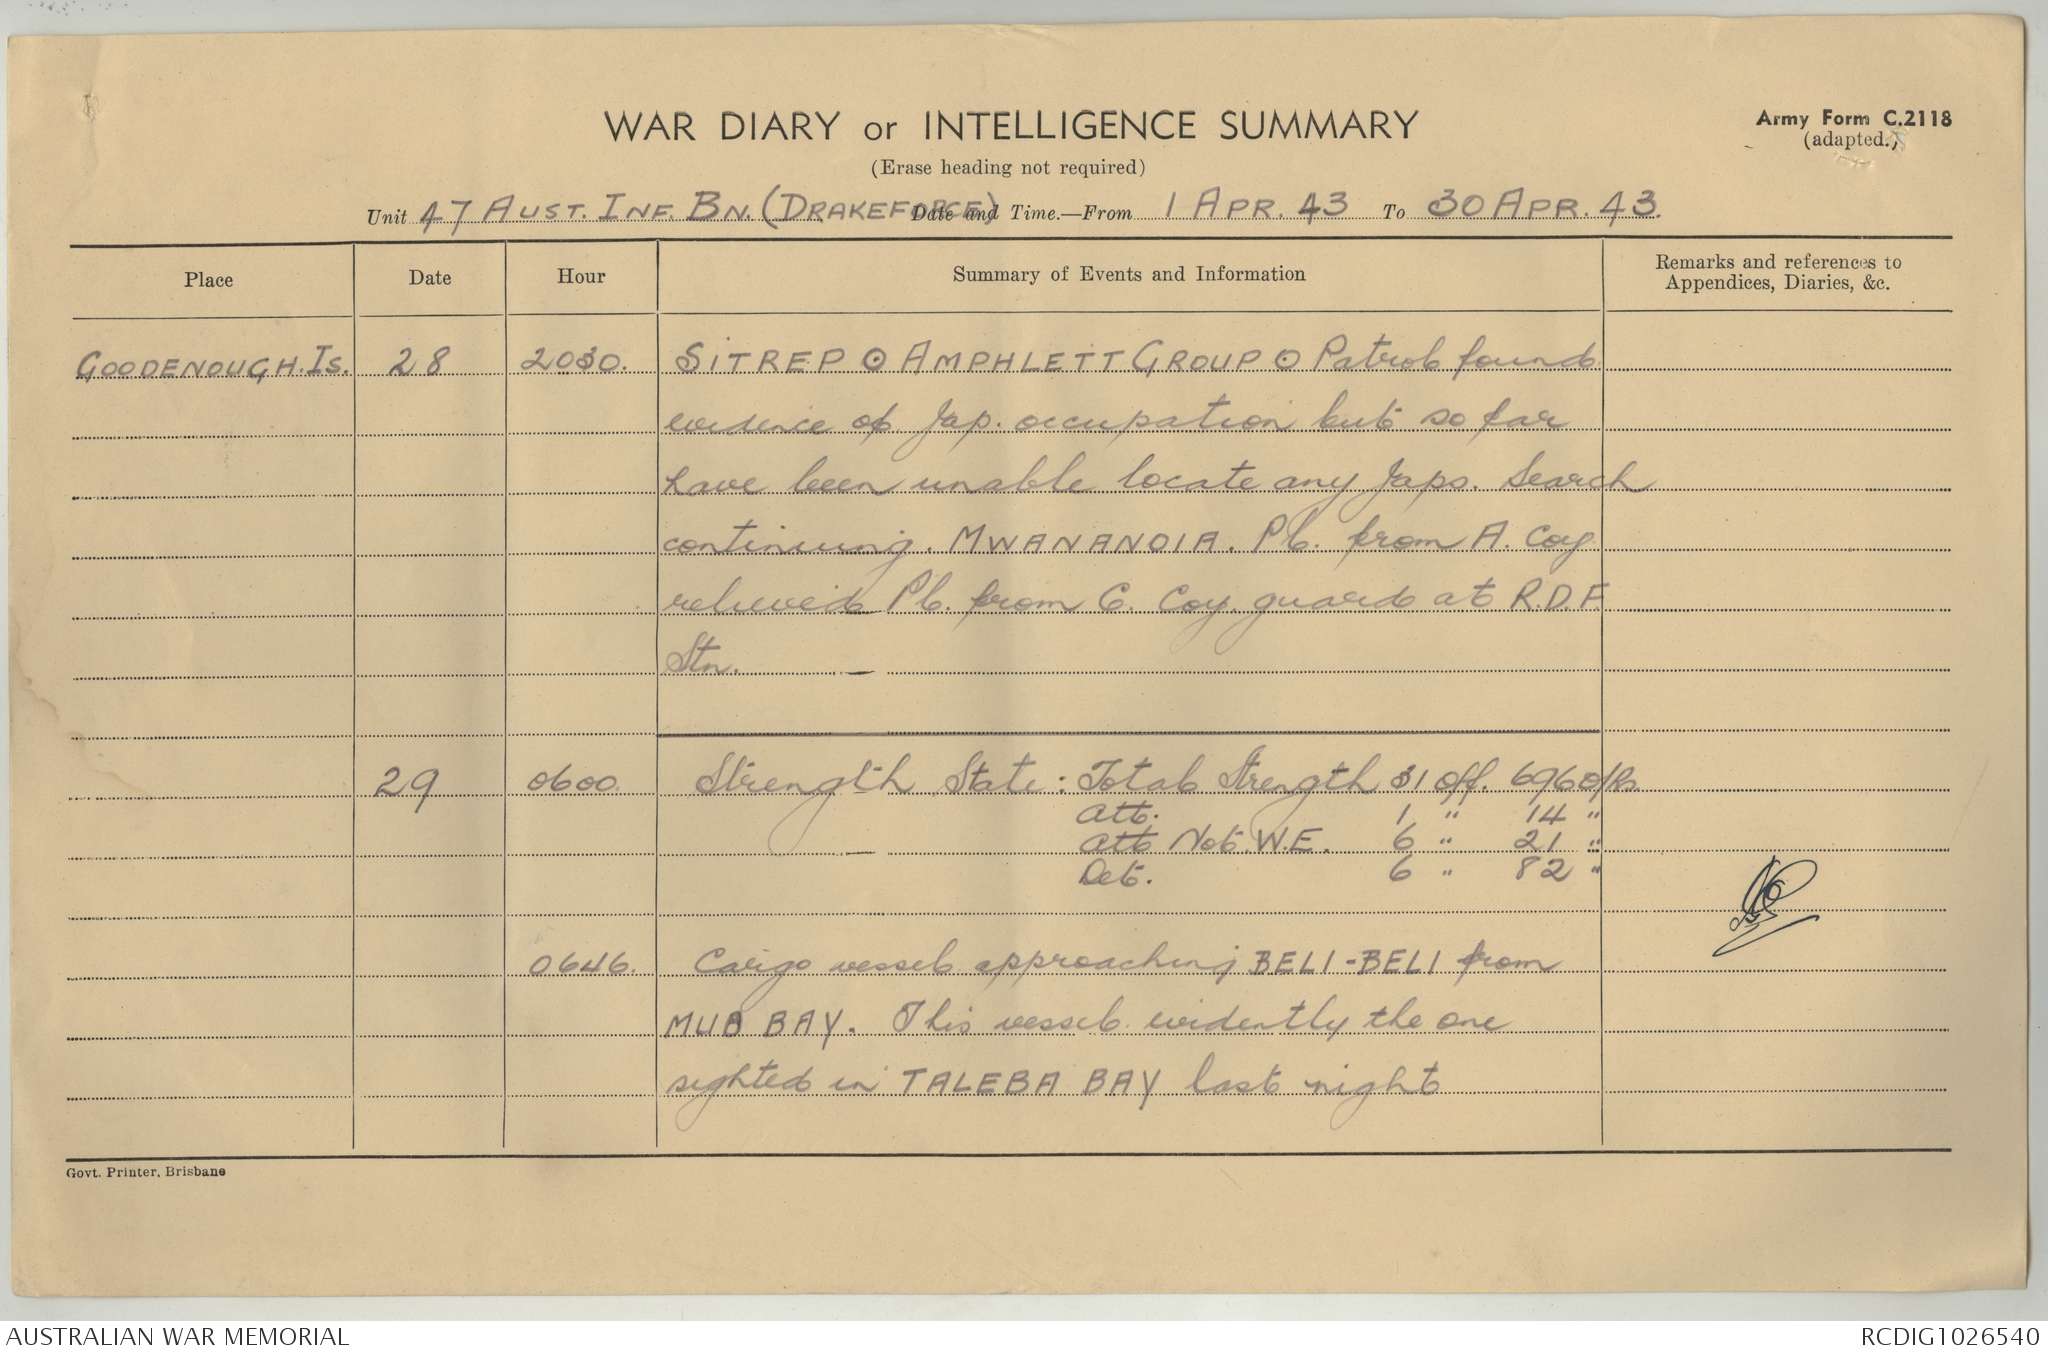 WAR DIARY or INTELLIGENCE SUMMARY
Army Form C.2118
(adapted.)
(Erase heading not required)
Unit 47 AUST. INF. BN. (DRAKEFORCE) Date and Time.—From 1 APR. 43 To 30 APR. 43.
Place Date Hour Summary of Events and Information Remarks and references to Appendices, Diaries, &c.
GOODENOUGH. IS. 28 2030. SITREP ⊙ AMPHLETT GROUP ⊙ Patrol found
evidence of Jap. occupation but so far
have been unable locate any Japs. Search
continuing. MWANANOIA. Pl. from A. Coy
relieved Pl. from C. Coy. guard at R.D.F.
Stn. —
29 0600. Strength State: Total Strength 31 off. 696 O/Rs.
Att. 1 " 14 "
— Att Not W.E. 6 " 21 "
Det. 6 " 82 "
0646. Cargo vessel approaching BELI-BELI from
MUD BAY. This vessel evidently the one
sighted in TALEBA BAY last night
Govt. Printer, Brisbane
AUSTRALIAN WAR MEMORIAL
RCDIG1026540